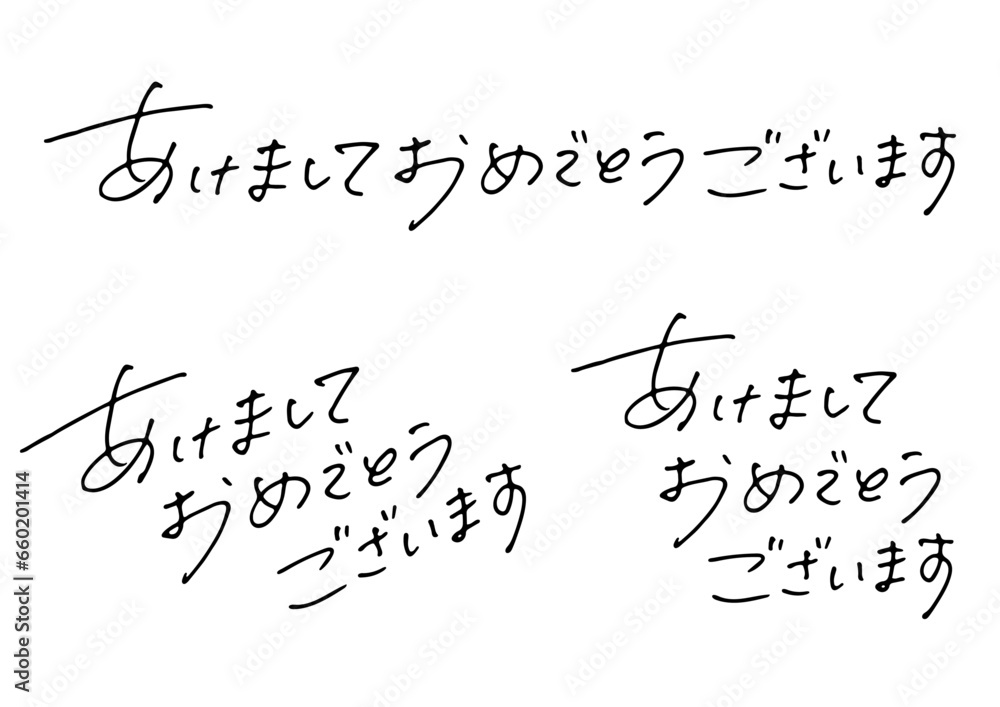 あけましておめでとうございます
あけまして
おめでとう
ございます
あけまして
おめでとう
ございます
Adobe Stock | #660201414